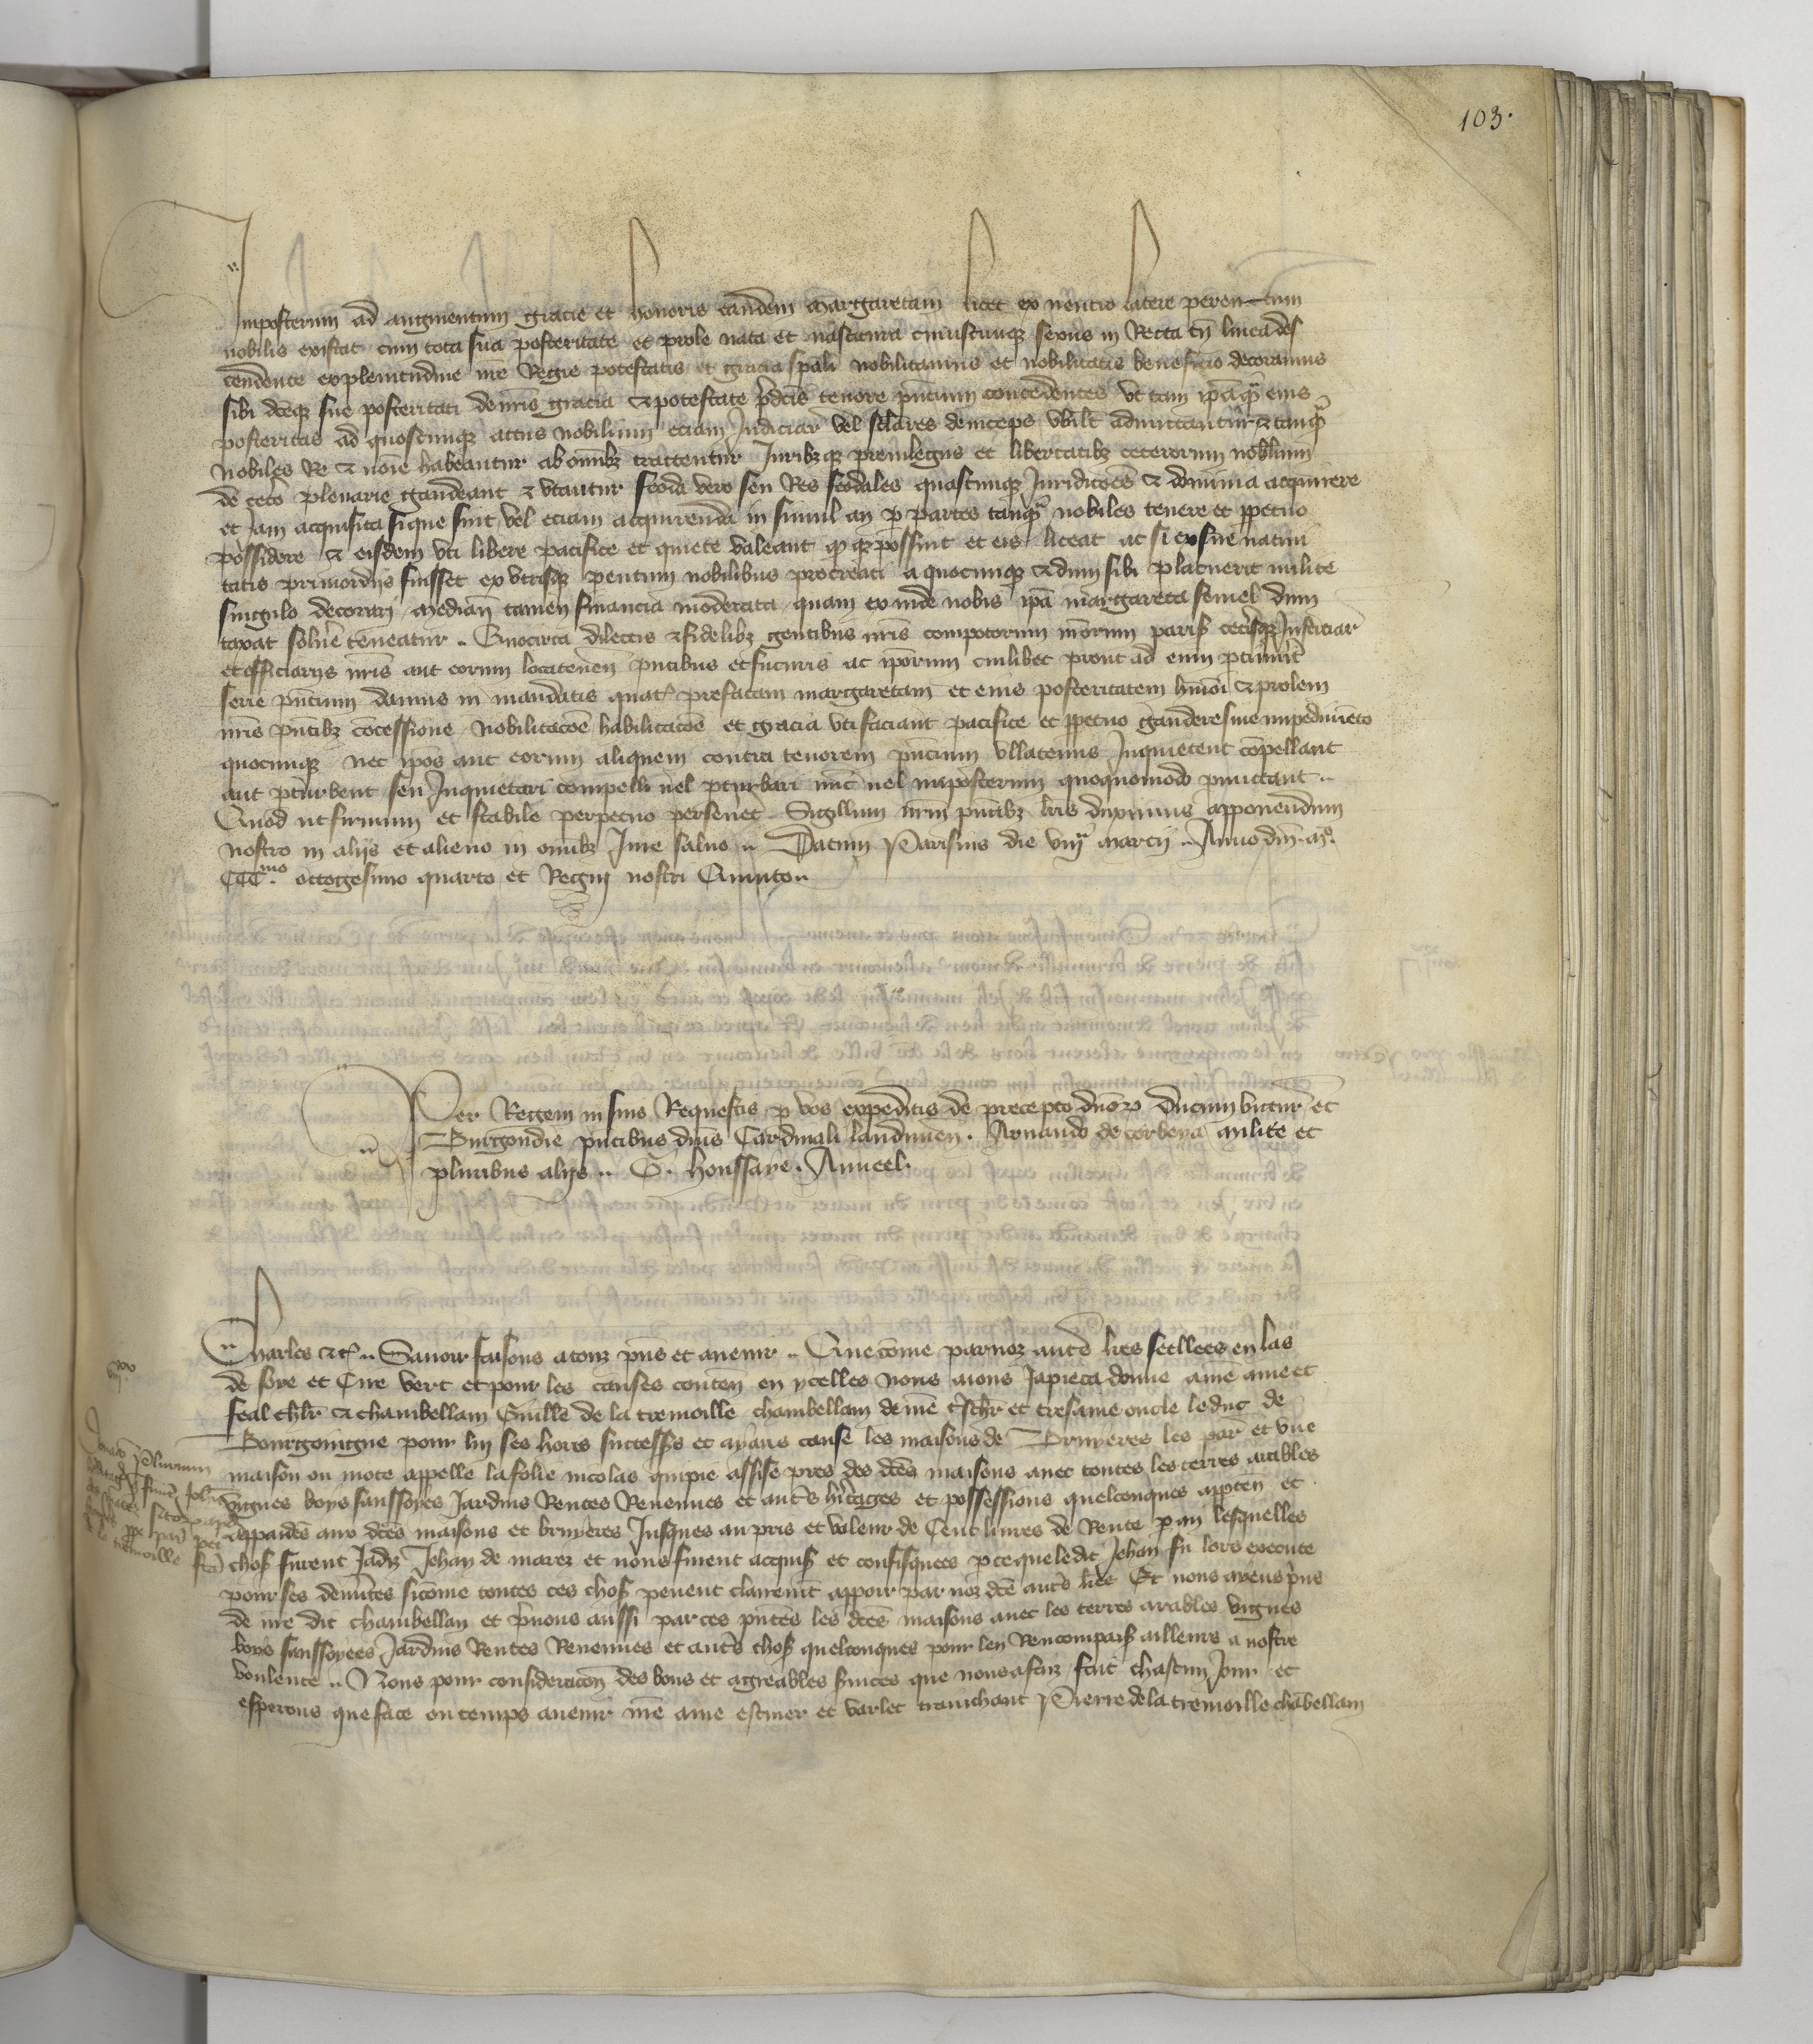 103.
Imposterum ad augmentum gracie et honoris eandem margaretam licet ex neutro latere parentum
nobilis existat cum tota sua posteritate et prole nata et nascitura cuiuscunque sexus in Recta tn̄ linea des
cendente ex plenitudine nr̄e Regie potestatis et gracia spāli nobilitamus et nobilitatis beneficio decoramus
sibi dcēque sue posteritati de nr̄is gracia et potestate p̄dcīs tenore pn̄cium concedentes ut tam ipāqꝫ eius
posteritas ad quoscunque actus nobilium eciam Judiciar̄ vel sc̄lares deinceps ubilt admittantur et tanqꝫ
nobiles Re et noīe habeantur ab omībꝫ tractentur Juribꝫque preuilegiis et libertatibꝫ ceterorum nobilium
de cetō plenarie gaudeant et utantur feoda vero seu Res feodales quascunque Juridicōēs et dominia acquirere
et iam acquisita si que sint vel eciam acquirenda in simul an p partes tanqꝫ nobiles tenere et ppetuo
possidere et eisdem uti libere pacifice et quiete valeant et possint et eis liceat ac si ex sue natiui
tatis primordiis fuissent ex utrisque pentum nobilibus procreati a quocunque et dum sibi placuerit milite
singulo decorari median̄ tamen financia moderata quam ex inde nobis ipā margareta semel dum
taxat soluē teneatur .. Quocirca dilectis et fidelibꝫ gentibus nr̄is compotorum nr̄orum paris̄ ceterisque Justiciar̄
et officiariis nr̄is aut eorum locatenen̄ pn̄tibus et futuris ac ipōrum cuilibet prout ad eum ptinuit̄
serie pn̄cium damus in mandatis quat̄ prefatam margaretam et eius posteritatem hm̄oī et prolem
nr̄is pn̄tibꝫ cōcessione nobilitacōe habilitacōe et gracia uti faciant pacifice et ppetuo gaudere sine impedimēto
quocunque nec ipōs aut eorum aliquem contra tenorem pn̄cium ullatenus Inquietent cōpellant
aut pturbent seu Inquietari compelli uel pturbari nūc uel imposterum quoquomodo pmittant ..
Quod ut firmum et stabile perpetuo perseuet̄ Sigillum nr̄m pn̄tibꝫ lr̄is duximus apponendum
nostro in aliis et alieno in omībꝫ Jure saluo .. Datum Parisius die viijᵃ marcii .. Anno dn̄i mº.
CCCmo. octogesimo quarto et Regni nostri Quinto ..
Per Regem in suis Requestis p vos expeditis de precepto dn̄orꝫ Ducum bitur̄ et
Burgondie pn̄tibus dn̄is Cardinali laudunen̄ . Arnaudo de corbeya milite et
pluribus aliis .. G. houssaye . Anucel.
Charles etc̄ .. Sauoir faisons a touz pn̄s et auenir .. Que cōme par noz autrē lr̄es seellees en las
de soye et Cire vert et pour les causes conten̄ en ycelles Nous aions Japieca donne a nr̄e ame et
feal chlr̄ et chambellam Guill̄e de la tremoille chambellam de nr̄e tsch̄r et tresame oncle le duc de
Bourgoingne pour luy ses hoirs success̄s et ayans cause les maisons de Bruyeres les par̄ et une
maison ou mote appelle la folie nicolas quipie assise pres des dcēs maisons auec toutes les terres arables
vignes boys saussoyes Jardins Rentes Reuenues et autrs̄ hr̄itages et possessions quelconques appten̄ et
appandēs aux dcēs maisons et bruyeres Jusques au pris et valeur de Cent liures de Rente p an lesquelles
chos̄ furent Jadiz Jehan de marez et nous furent acquis̄ et confisquees p ce que le dit Jehan fu lors execute
pour ses demītes sicōme toutes ces chos̄ peuent clarem̄t appoir par noz dcēs autrs̄ lr̄es Et nous ayens p̄ns
de nr̄e dit chambellan et p̄nons aussi par ces pn̄tes les dcēs maisons auec les terres arables vignes
boys saussoyees Jardins Rentes Reuenues et autrs̄ chos̄ quelconques pour len Rencompais̄ ailleurs a nostre
voulente .. Nous pour consideracōn des bons et agreables s̄uices que nous a faiz fait chascun Jour et
esperons que face ou temps auenir nr̄e ame escuier et varlet trainchant Pierre de la tremoille chābellam